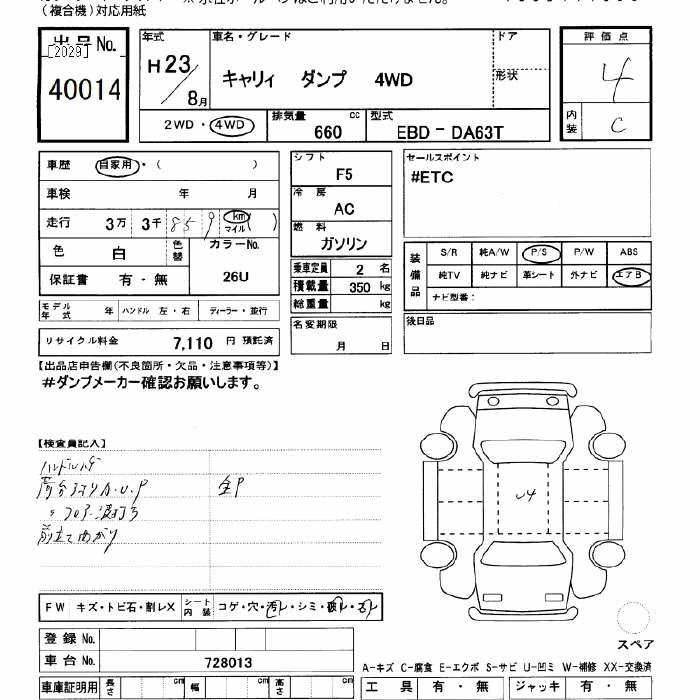 (複合機)対応用紙
出品No. [2029] 40014
年式 H23/8月
車名・グレード キャリィ ダンプ 4WD
ドア
形状
評価点 4
内装 C
2WD・4WD
排気量 660 cc
型式 EBD-DA63T
車歴 自家用・( )
車検 年 月
走行 3万 3千 859 km マイル ( )
色 白 色替
カラーNo. 26U
保証書 有・無
シフト F5
冷房 AC
燃料 ガソリン
乗車定員 2名
積載量 350 kg
総重量 kg
セールスポイント
#ETC
装備品
S/R 純A/W P/S P/W ABS
純TV 純ナビ 革シート 外ナビ エアB
ナビ型番:
モデル年式 年 ハンドル 左・右 ディーラー・並行
名変期限 月 日
後日品
リサイクル料金 7,110 円 預託済
【出品店申告欄(不良箇所・欠品・注意事項等)】
#ダンプメーカー確認お願いします。
【検査員記入】
ハンドルハゲ
荷台コマリA.U.P
〃フロア波打ち
前立て曲がり
全P
U4
FW キズ・トビ石・割レX シート内装 コゲ・穴・汚レ・シミ・破レ・スレ
登録No.
車台No. 728013
スペア
A-キズ C-腐食 E-エクボ S-サビ U-凹ミ W-補修 XX-交換済
車庫証明用 長さ cm 幅 cm 高さ cm
工具 有・無 ジャッキ 有・無